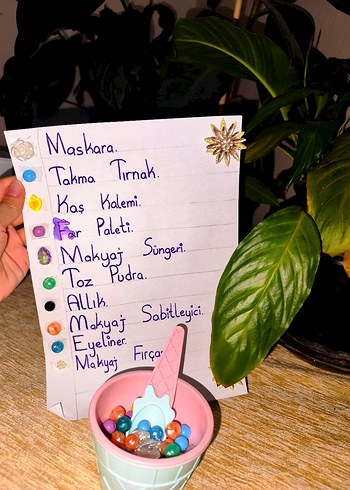 Maskara.
Takma Tırnak.
Kaş Kalemi.
Far Paleti.
Makyaj Süngeri.
Toz Pudra.
Allık.
Makyaj Sabitleyici.
Eyeliner.
Makyaj Fırça